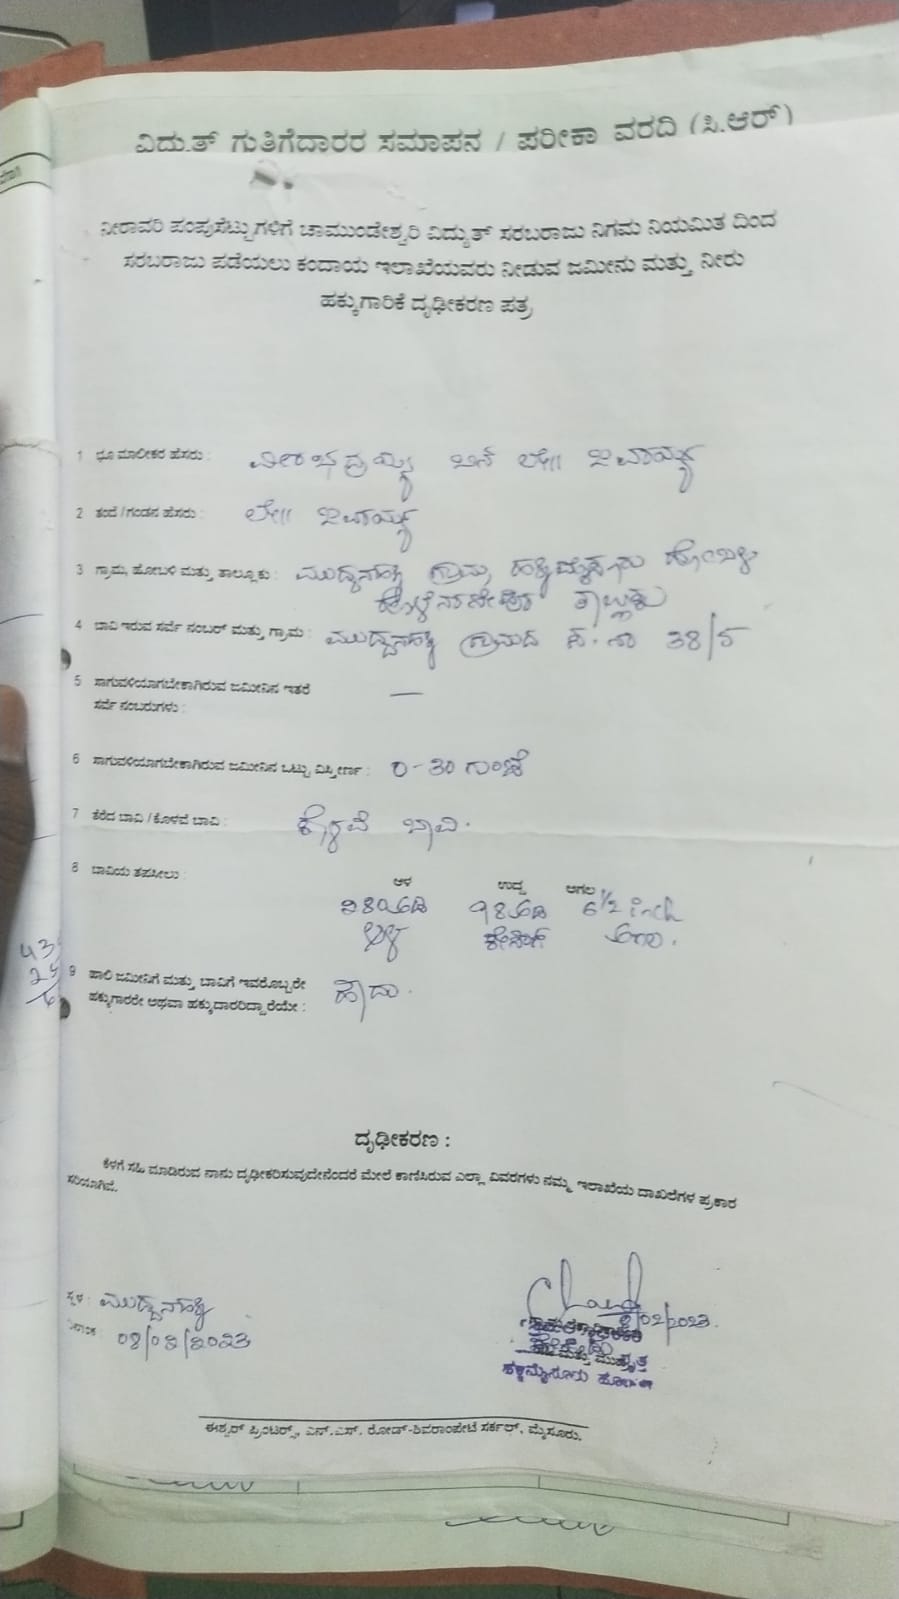 ವಿದ್ಯುತ್ ಗುತಿಗೆದಾರರ ಸಮಾಪನ / ಪರೀಕಾ ವರದಿ (ಸಿ.ಆರ್)
ನೀರಾವರಿ ಪಂಪುಸೆಟ್ಟುಗಳಿಗೆ ಚಾಮುಂಡೇಶ್ವರಿ ವಿದ್ಯುತ್ ಸರಬರಾಜು ನಿಗಮ ನಿಯಮಿತ ದಿಂದ
ಸರಬರಾಜು ಪಡೆಯಲು ಕಂದಾಯ ಇಲಾಖೆಯವರು ನೀಡುವ ಜಮೀನು ಮತ್ತು ನೀರು
ಹಕ್ಕುಗಾರಿಕೆ ದೃಢೀಕರಣ ಪತ್ರ
1 ಭೂ ಮಾಲೀಕರ ಹೆಸರು : ವೀರಭದ್ರಯ್ಯ ಬಿನ್ ಲೇ||
2 ತಂದೆ / ಗಂಡನ ಹೆಸರು : ಲೇ||
3 ಗ್ರಾಮ, ಹೋಬಳಿ ಮತ್ತು ತಾಲ್ಲೂಕು : ಮುದ್ದನಹಳ್ಳಿ ಗ್ರಾಮ, ಹಳ್ಳಿಮೈಸೂರು ಹೋಬಳಿ
ಹೊಳೆನರಸೀಪುರ ತಾಲ್ಲೂಕು
4 ಬಾವಿ ಇರುವ ಸರ್ವೆ ನಂಬರ್ ಮತ್ತು ಗ್ರಾಮ : ಮುದ್ದನಹಳ್ಳಿ ಗ್ರಾಮದ ಸ.ನಂ 38/5
5 ಸಾಗುವಳಿಯಾಗಬೇಕಾಗಿರುವ ಜಮೀನಿನ ಇತರೆ —
ಸರ್ವೆ ನಂಬರುಗಳು :
6 ಸಾಗುವಳಿಯಾಗಬೇಕಾಗಿರುವ ಜಮೀನಿನ ಒಟ್ಟು ವಿಸ್ತೀರ್ಣ : 0-30 ಗುಂಟೆ
7 ತೆರೆದ ಬಾವಿ / ಕೊಳವೆ ಬಾವಿ : ಕೊಳವೆ ಬಾವಿ.
8 ಬಾವಿಯ ತಪಸೀಲು :
ಆಳ ಉದ್ದ ಅಗಲ
6 1/2 inch
ಆಳ ಕೇಸಿಂಗ್
9 ಹಾಲಿ ಜಮೀನಿಗೆ ಮತ್ತು ಬಾವಿಗೆ ಇವರೊಬ್ಬರೇ ಹೌದು.
ಹಕ್ಕುಗಾರರೇ ಅಥವಾ ಹಕ್ಕುದಾರರಿದ್ದಾರೆಯೇ :
ದೃಢೀಕರಣ :
ಕೆಳಗೆ ಸಹಿ ಮಾಡಿರುವ ನಾನು ದೃಢೀಕರಿಸುವುದೇನೆಂದರೆ ಮೇಲೆ ಕಾಣಿಸಿರುವ ಎಲ್ಲಾ ವಿವರಗಳು ನಮ್ಮ ಇಲಾಖೆಯ ದಾಖಲೆಗಳ ಪ್ರಕಾರ
ಸರಿಯಾಗಿವೆ.
ಸ್ಥಳ : ಮುದ್ದನಹಳ್ಳಿ
ದಿನಾಂಕ : 08/02/2023
8/02/2023.
ಹಳ್ಳಿಮೈಸೂರು ಹೋಬಳಿ
ಈಶ್ವರ್ ಪ್ರಿಂಟರ್ಸ್, ಎನ್.ಎಸ್. ರೋಡ್-ಶಿವರಾಂಪೇಟೆ ಸರ್ಕಲ್, ಮೈಸೂರು.